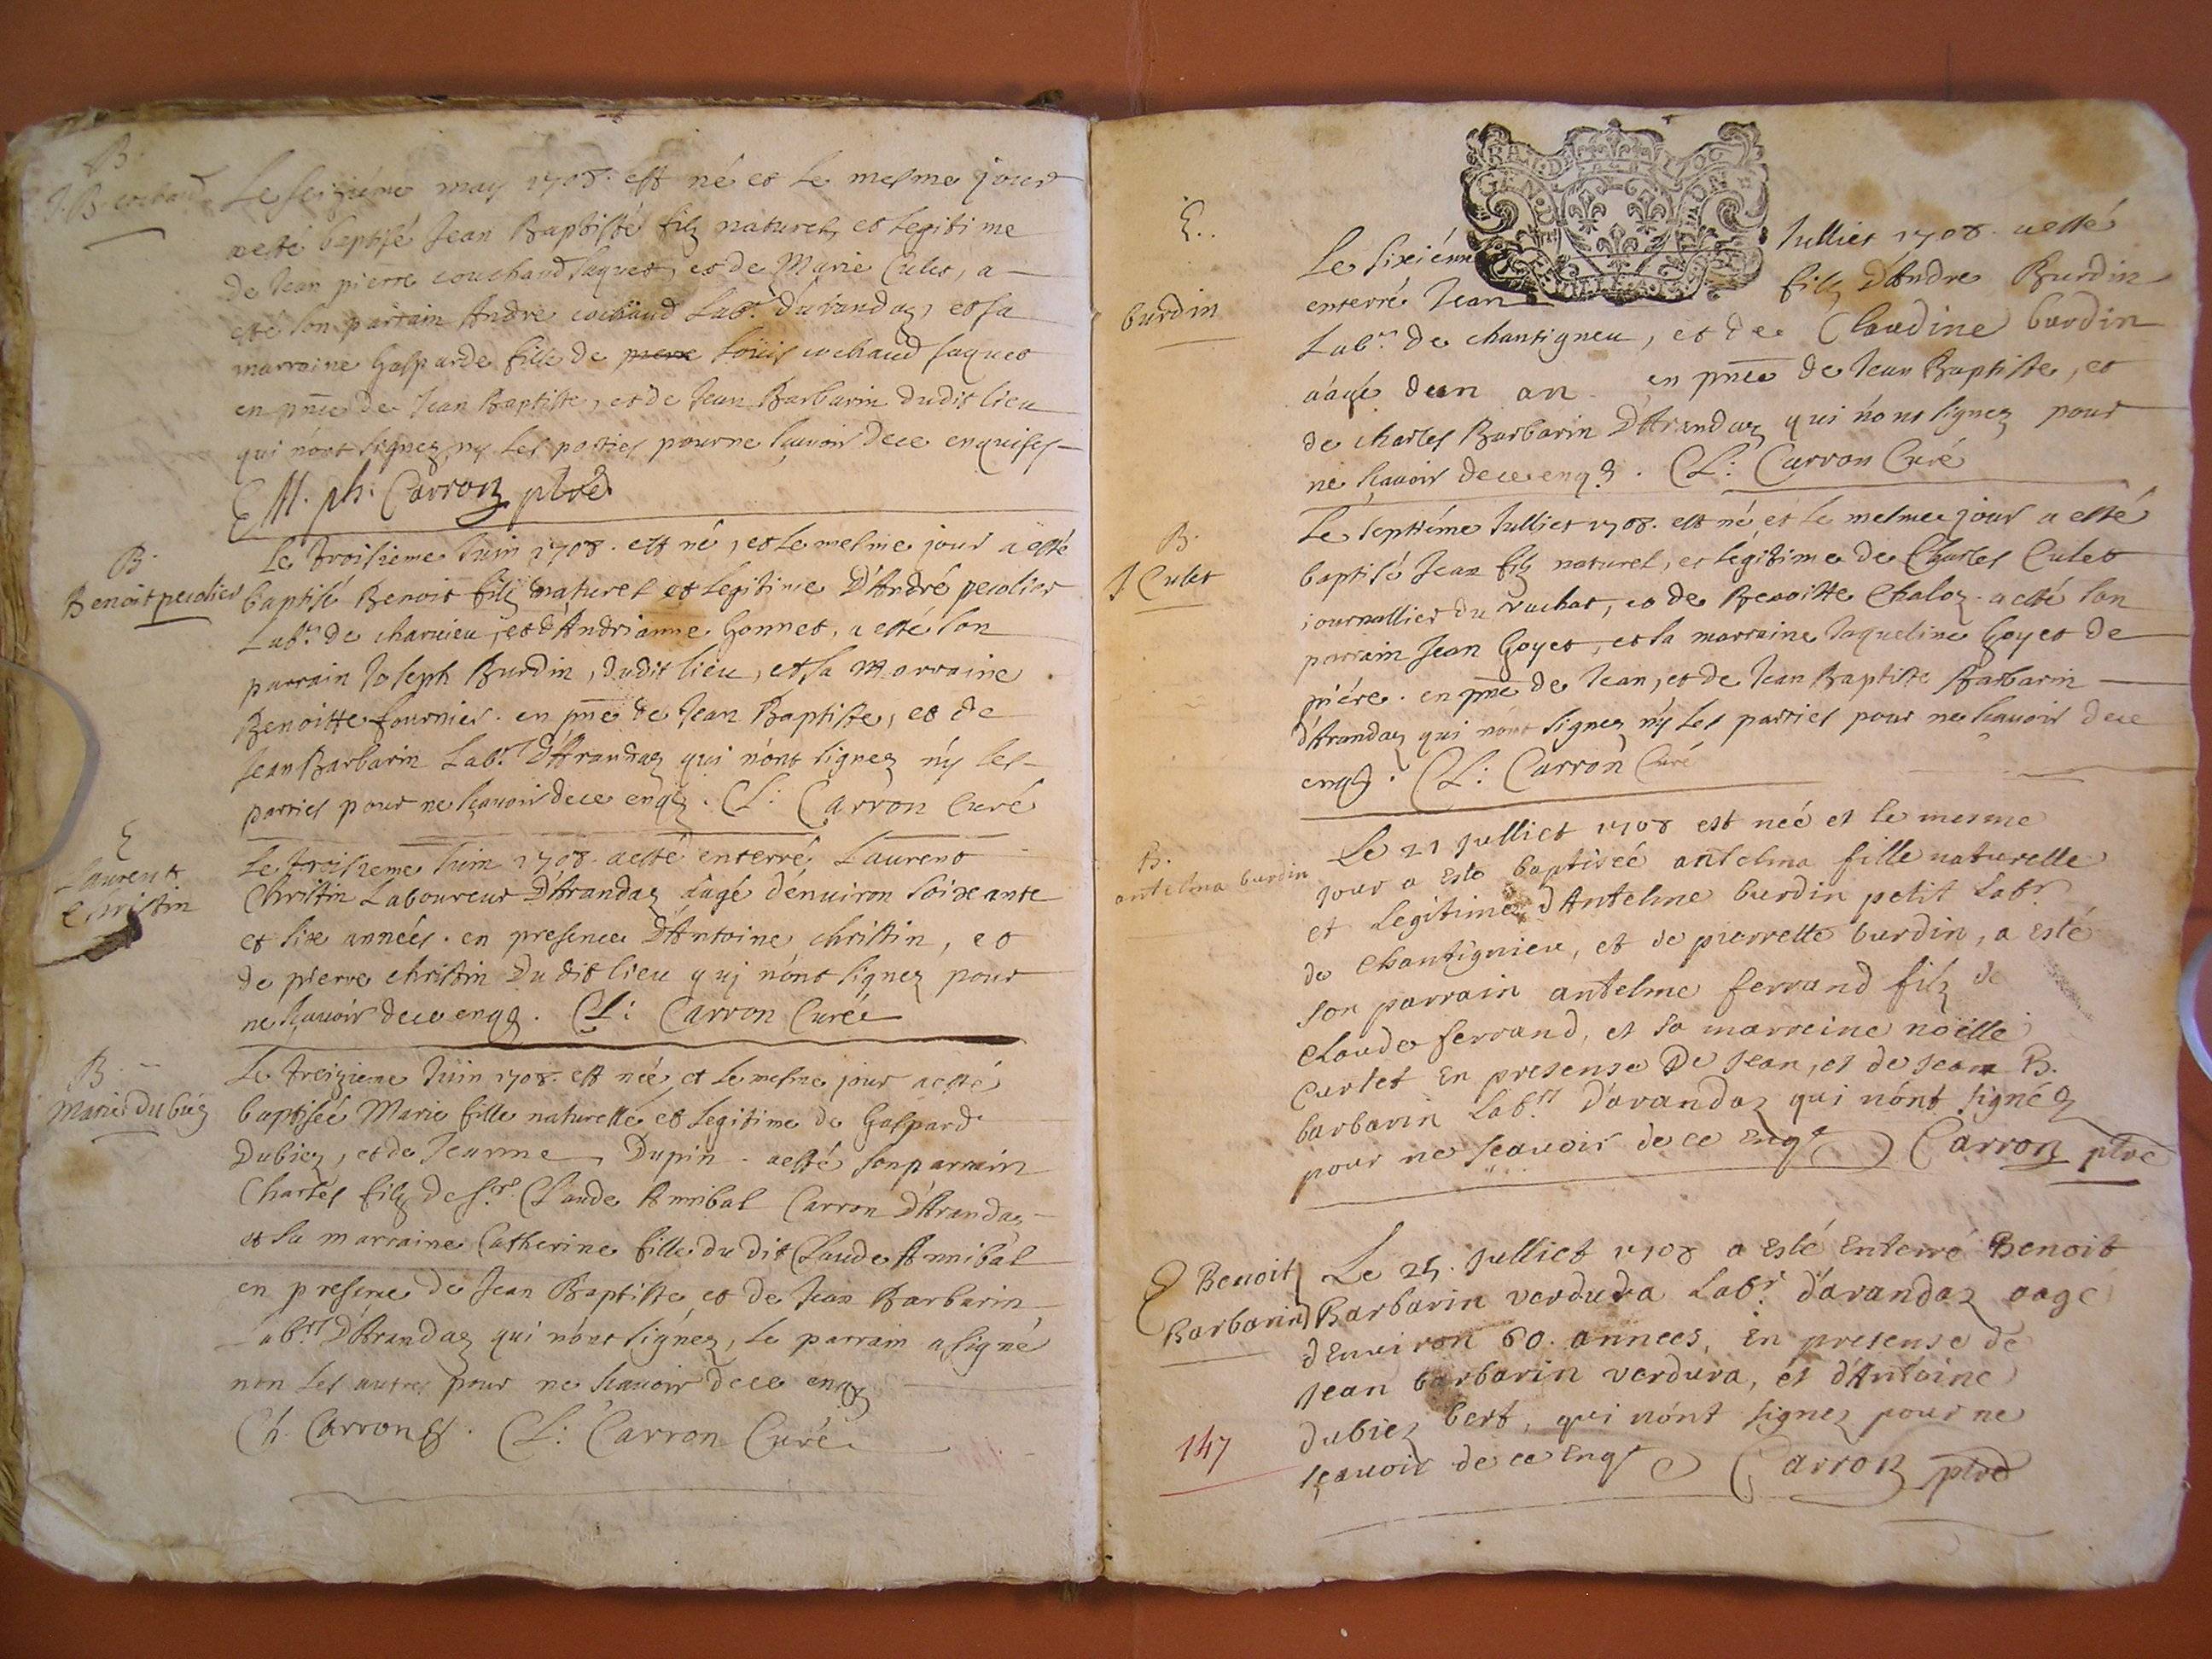 B.
J. B. cochaud
Le seizieme may 1708. est né et le mesme jour
a esté baptisé Jean Baptiste filz naturel, et legitime
de Jean pierre couchaud Jaquet, et de Marie Culet, a
esté son parrain Andre cochaud Labr. d'arandaz, et sa
marraine Gasparde fille de pierre Loüis cochaud Jaquet
en pnce de Jean Baptiste, et de Jean Barbarin dudit lieu
qui n'ont signez ny les parties pour ne sçavoir de ce enquises
M. ph. Carron ptre
B.
Benoit pecolier
Le troisieme Juin 1708. est né, et le mesme jour a esté
baptisé Benoit filz naturel et legitime D'André pecolier
Labr. de charvieu, et d'Andrianne Gonnet, a esté son
parrain Joseph Burdin, dudit lieu, et sa marraine
Benoitte fournier. en pnce de Jean Baptiste, et de
Jean Barbarin Labrs D'Arandaz qui n'ont signez n'y les
parties pour ne sçavoir de ce enqz. Cl: Carron Curé
E
Laurent
Christin
Le troisieme Juin 1708. a esté enterré Laurent
Christin Laboureur D'Arandaz aagé d'enuiron soixante
et six années. en presence D'Antoine christin, et
de pierre christin Du dit lieu qui n'ont signez pour
ne sçavoir de ce enqz. Cl: Carron Curé
B.
Marie dubiez
Le treizieme Juin 1708. est née, et le mesme jour a esté
baptisée Marie fille naturelle et legitime de Gaspard
Dubiez, et de Jeanne Dupin. a esté son parrain
Charles filz de sr. Claude Annibal Carron D'Arandaz
et sa marraine Catherine fille du dit Claude Annibal
en presence de Jean Baptiste et de Jean Barbarin
Labrs D'Arandaz qui n'ont signez, le parrain a signé
non les autres pour ne sçavoir de ce enqz
Ch. Carron. Cl: Carron Curé
E.
burdin
Le sixiéme Julliet 1708. a esté
enterré Jean filz d'Andre Burdin
Labr. de chantigneu, et de Claudine burdin
aagé dun an en pnce de Jean Baptiste, et
de charles Barbarin D'Arandaz qui n'ont signez pour
ne sçavoir de ce enqz. Cl: Carron Curé
B.
J Culet
Le septiéme Julliet 1708. est né et le mesme jour a esté
baptisé Jean filz naturel, et legitime de Charles Culet
journallier du vachat, et de Benoitte Chaloz. a esté son
parrain Jean Goyet, et sa marraine Jaqueline Goyet de
piére. en pnce de Jean, et de Jean Baptiste Barbarin
d'Arandaz qui n'ont signez n'y les parties pour ne sçavoir de ce
enqz. Cl: Carron Curé
B.
antelma burdin
Le 21 Julliet 1708 est née et le mesme
jour a esté baptisée antelma fille naturelle
et Legitime d'Antelme burdin petit Labr
de chantignieu, et de pierrette burdin, a esté
son parrain antelme ferrand filz de
claude ferrand, et sa marreine noëlle
Curtet En presense De Jean, et de Jean B.
barbarin Labrs d'arandaz qui n'ont signéz
pour ne sçavoir de ce Enqs Carron ptre
E Benoit
Barbarin
Le 25. Julliet 1708 a esté Enterré Benoit
Barbarin verdura Labr. d'arandaz aage
dEnuiron 60. années, En presense de
Jean barbarin verdura, et d'Antoine
dubiez bert, qui n'ont signez pour ne
sçavoir de ce Enqs Carron ptre
147